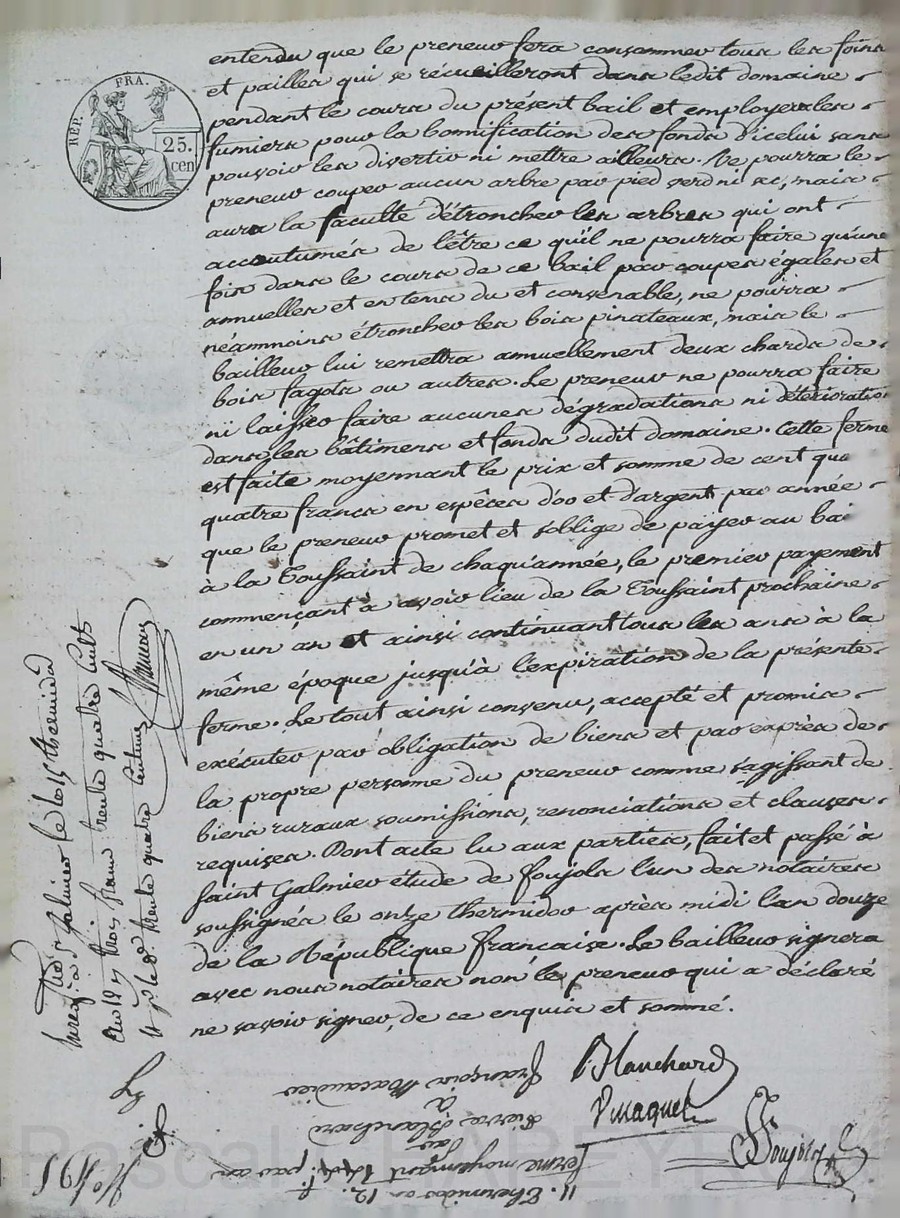 RÉP. FRA.
25.
cen
entendu que le preneur fera consommer tous les foins
et pailles qui se récueilleront dans ledit domaine
pendant le cours du présent bail et employera les
fumiers pour la bonnification des fonds d'icelui sans
pouvoir les divertir ni mettre ailleurs. Ne pourra le
preneur couper aucun arbre par pied verd ni sec, mais
aura la faculté d'étroncher les arbres qui ont
accoutumés de l'être ce qu'il ne pourra faire qu'une
fois dans le cours de ce bail par coupes égales et
annuelles et en tems du et convenable, ne pourra
néammoins étroncher les bois pinateaux, mais le
bailleur lui remettra annuellement deux chards de
bois fagots ou autres. Le preneur ne pourra faire
ni laisser faire aucunes dégradations ni déterioration
dans les bâtimens et fonds dudit domaine. Cette ferme
est faite moyennant le prix et somme de cent qua
quatre francs en espêces d'or et d'argent par année
que le preneur promet et s'oblige de payer au bai
à la Toussaint de chaqu'année, le premier payement
commençant à avoir lieu de la Toussaint prochaine
en un an et ainsi continuant tous les ans à la
même époque jusqu'à l'expiration de la présente
ferme. Le tout ainsi convenu, accepté et promis
exécuter par obligation de biens et par exprès de
la propre personne du preneur comme s'agissant de
biens ruraux soumissions, renonciations et clauses
requises. Dont acte lu aux parties, fait et passé à
Saint Galmier étude de Foujols l'un des notaires
soussignés le onze thermidor après midi l'an douze
de la République française. Le bailleur signera
avec nous notaires non le preneur qui a déclaré
ne savoir signer, de ce enquis et sommé.
Blanchard
Foujols
Enregistré à St Galmier le 15 thermidor
an 12 trois francs trente quatre
trente quatre centimes
11. Thermidor an 12.
ferme moyennant 144 f. par an
par
Pierre Blanchard
à
François
No 191
Pascal CHABEYRON